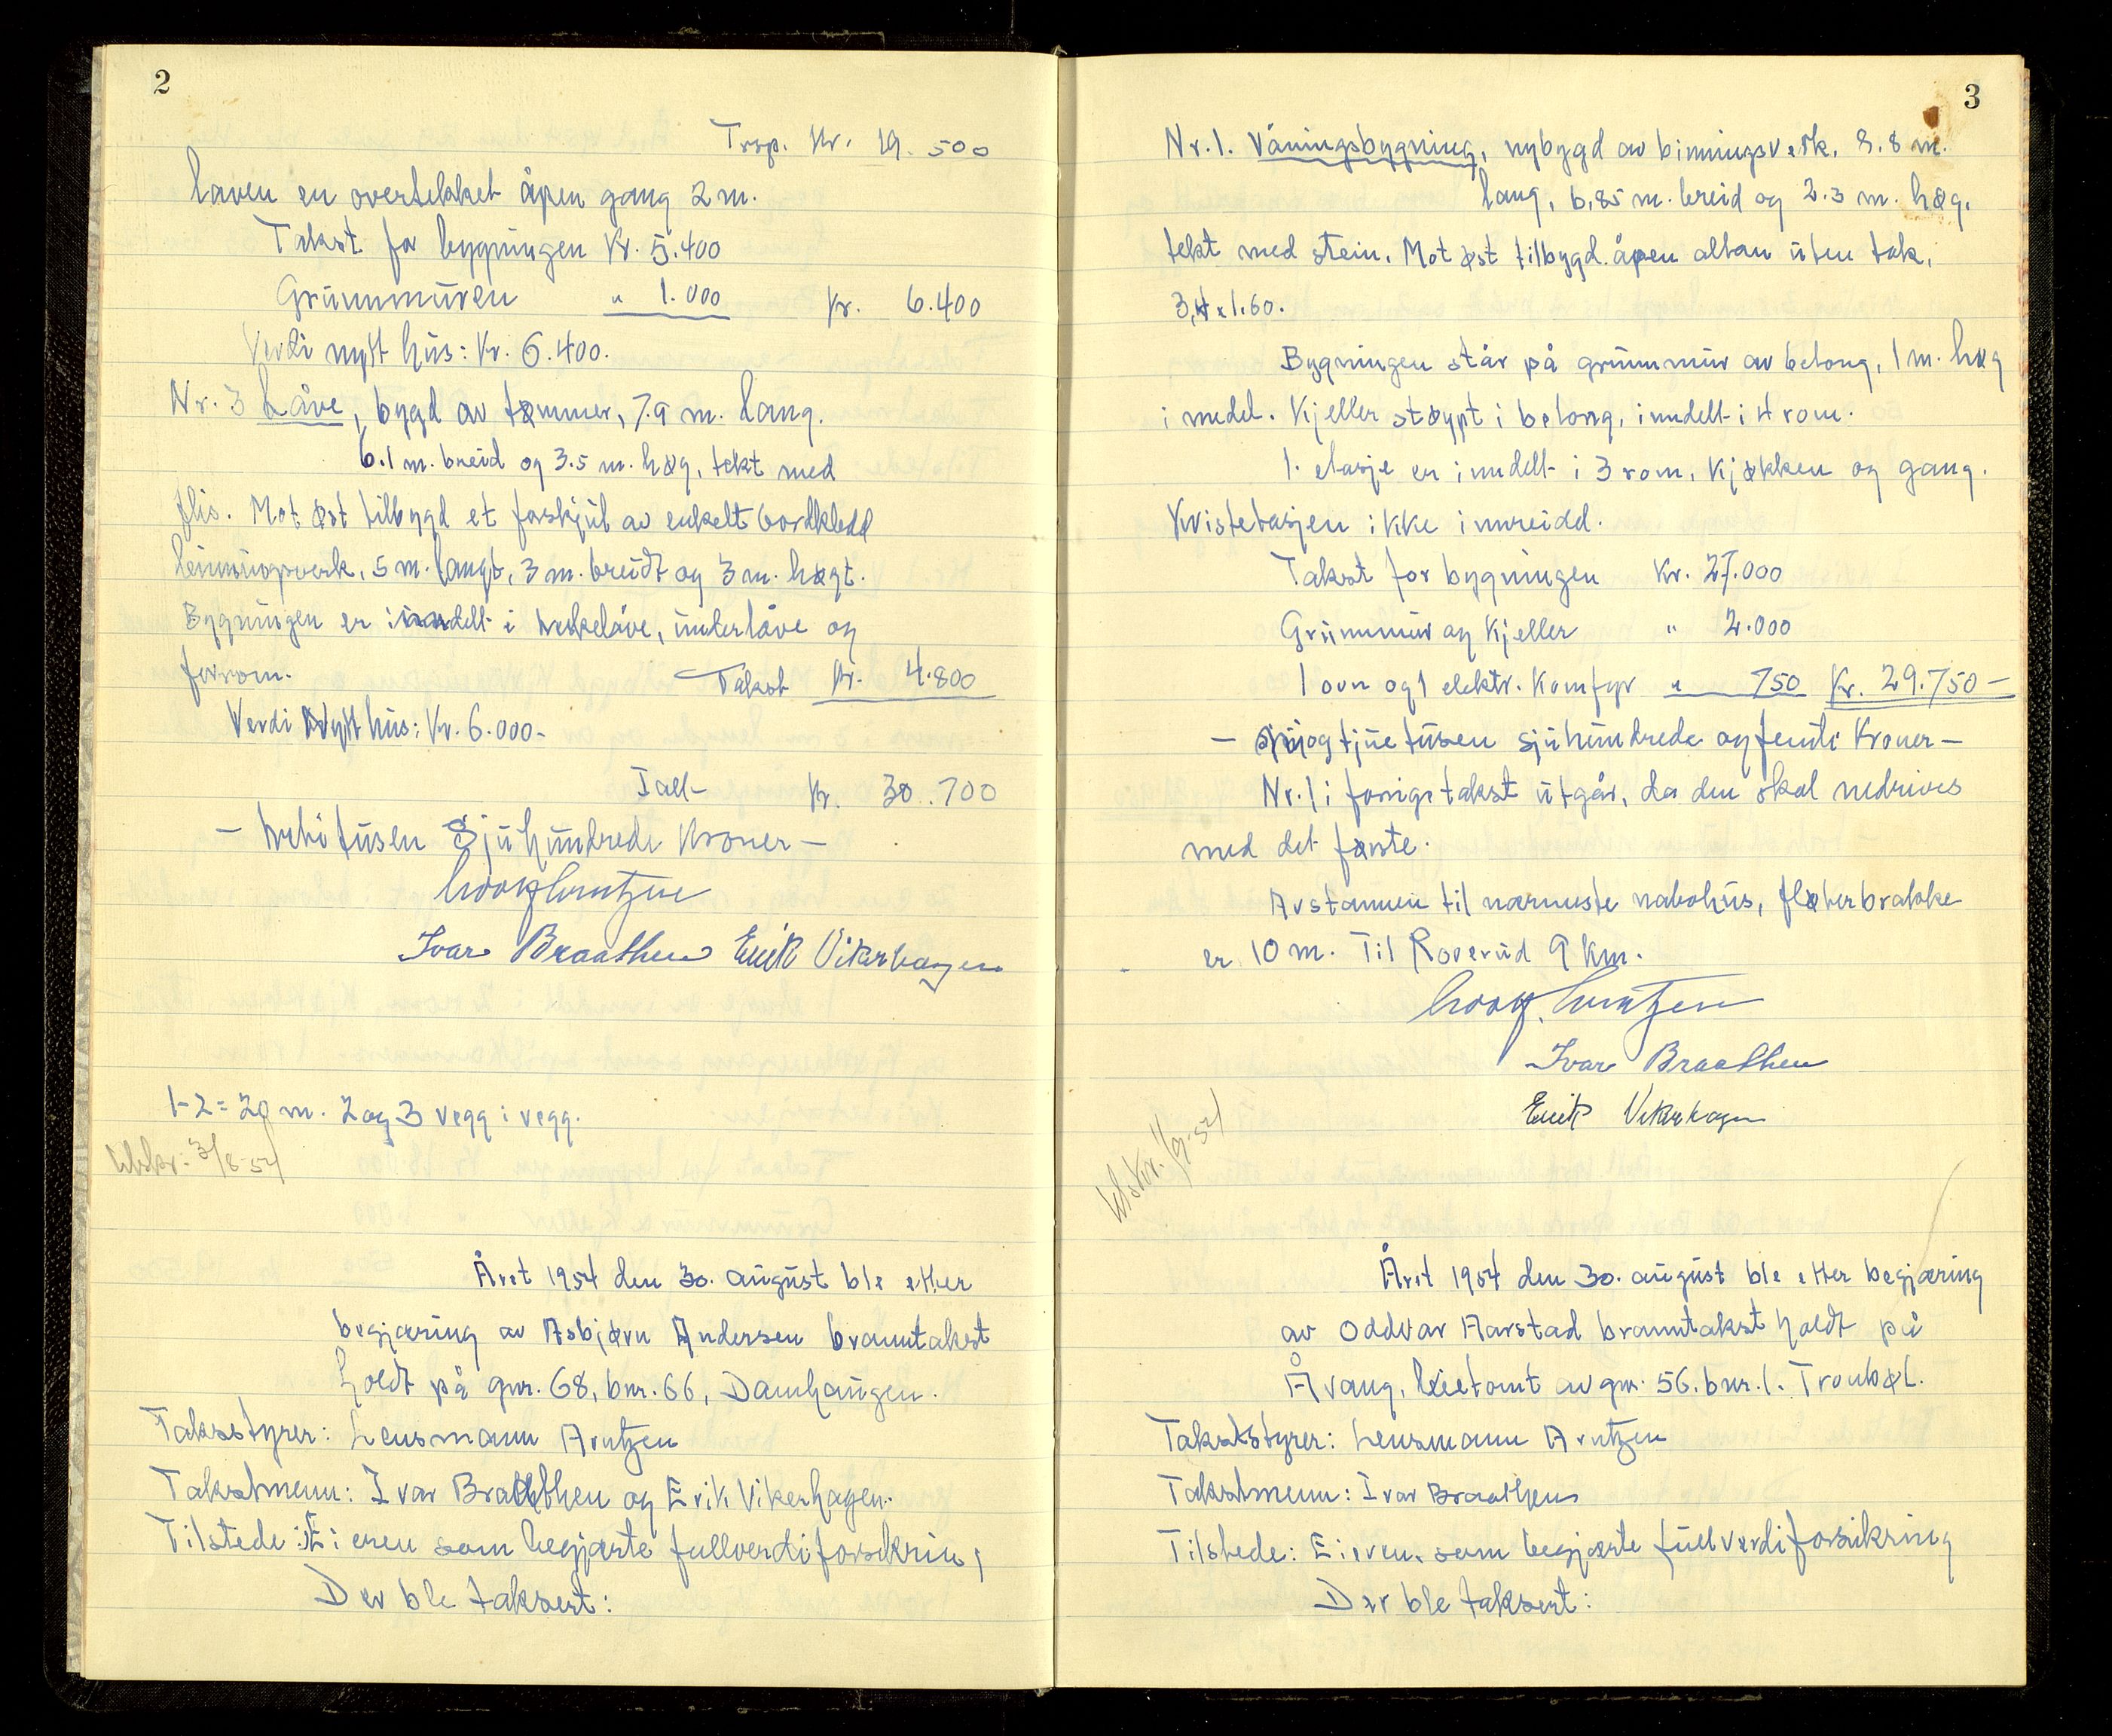 2
Trsp. Kr. 19.500
laven en overtekket åpen gang 2 m.
Takst for bygningen Kr. 5.400
Grunnmuren " 1.000 Kr. 6.400
Verdi nytt hus: Kr. 6.400.
Nr. 3 Låve, bygd av tømmer, 7.9 m. lang.
6.1 m. breid og 3.5 m. høg, tekt med
flis. Mot øst tilbygd et forskjul av enkelt bordkledd
binningsverk, 5 m. langt, 3 m. breidt og 3 m. høgt.
Bygningen er inndelt i treskelåve, underlåve og
forrom. Takst Kr. 4.800
Verdi nytt hus: Kr. 6.000-
Ialt Kr. 30.700
- tretitusen sjuhundrede kroner -
Ivar Braathen Erik Vikerhagen
1-2 = 20 m. 2 og 3 vegg i vegg.
Utskr. 31/8-54
Året 1954 den 30. august ble etter
begjæring av Asbjørn Andersen branntakst
holdt på gnr. 68, bnr. 66, Damhaugen.
Taksstyrer: Lensmann Arntzen
Takstmenn: Ivar Braathen og Erik Vikerhagen.
Tilstede: Eieren som begjærte fullverdiforsikring
Der ble taksert:
3
Nr. 1. Våningsbygning, nybygd av binningsverk, 8.8 m.
lang, 6,85 m. breid og 2.3 m. høg.
tekt med stein. Mot øst tilbygd åpen altan uten tak,
3,4 x 1.60.
Bygningen står på grunnmur av betong, 1 m. høg
i medel. Kjeller støypt i betong, inndelt i 4 rom.
1. etasje er inndelt i 3 rom, kjøkken og gang.
Kvistetasjen ikke innreidd.
Takst for bygningen Kr. 27.000
Grunnmur og kjeller " 2.000
1 ovn og 1 elektr. komfyr " 750 Kr. 29.750-
- niogtjuetusen sjuhundrede og femti kroner -
Nr. 1 i forrige takst utgår, da den skal nedrives
med det første.
Avstannen til nærmeste nabohus, fløterbrakke
er 10 m. Til Roverud 9 km.
Ivar Braathen
Erik Vikerhagen
Utskr. 1/9-54
Året 1954 den 30. august ble etter begjæring
av Oddvar Aarstad branntakst holdt på
Åvang, leietomt av gnr. 56. bnr. 1. Tronbøl.
Takststyrer: Lensmann Arntzen
Takstmenn: Ivar Braathen
Tilstede: Eieren, som begjærte fullverdiforsikring
Der ble taksert: